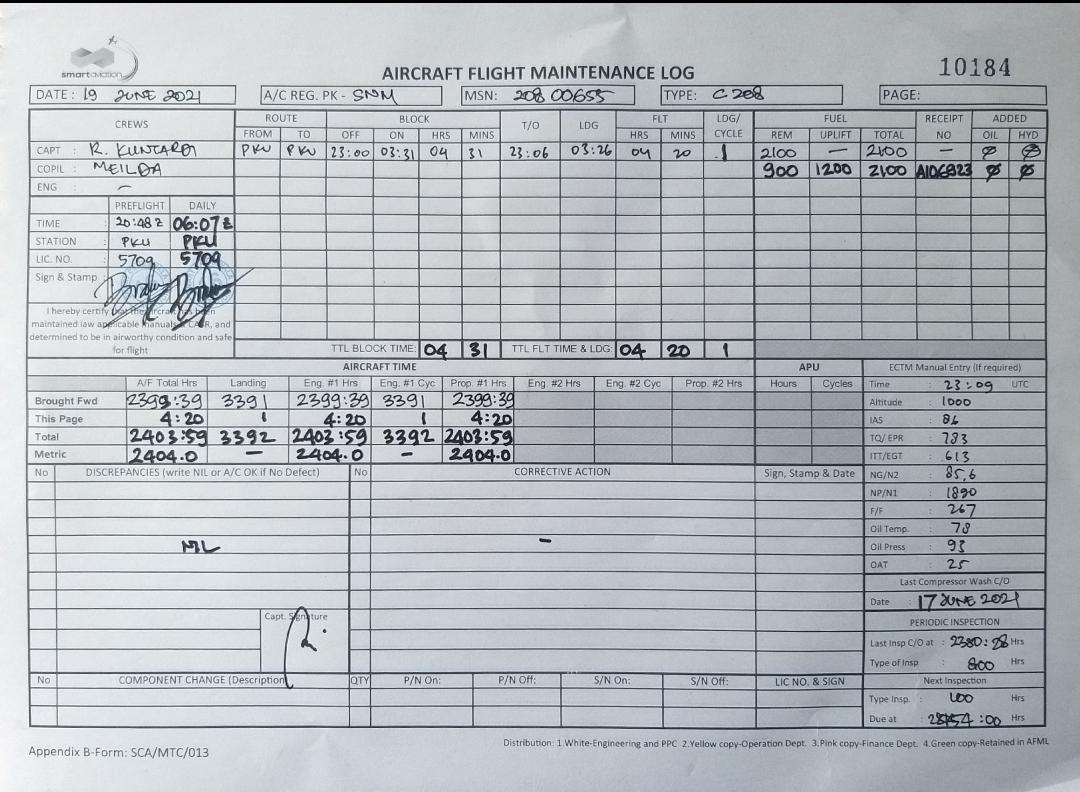 smartaviation
AIRCRAFT FLIGHT MAINTENANCE LOG
10184
DATE: 19 JUNE 2021 A/C REG. PK - SNM MSN: 208 00655 TYPE: C 208 PAGE:
CREWS ROUTE BLOCK T/O LDG FLT LDG/ CYCLE FUEL RECEIPT NO ADDED
FROM TO OFF ON HRS MINS HRS MINS REM UPLIFT TOTAL OIL HYD
CAPT : R. KUNCARDI PKU PKU 23:00 03:31 04 31 23:06 03:26 04 20 1 2100 — 2100 — Ø Ø
COPIL : MEILDA 900 1200 2100 Ø Ø
ENG : —
PREFLIGHT DAILY
TIME : 20:48 Z 06:07 Z
STATION : PKU PKU
LIC. NO. : 5709 5709
Sign & Stamp :
I hereby certify that the aircraft has been
maintained iaw applicable manuals & CASR, and
determined to be in airworthy condition and safe
for flight
TTL BLOCK TIME: 04 31 TTL FLT TIME & LDG: 04 20 1
AIRCRAFT TIME APU ECTM Manual Entry (If required)
A/F Total Hrs Landing Eng. #1 Hrs Eng. #1 Cyc Prop. #1 Hrs Eng. #2 Hrs Eng. #2 Cyc Prop. #2 Hrs Hours Cycles Time : 23:09 UTC
Brought Fwd 2399:39 3391 2399:39 3391 2399:39 Altitude : 1000
This Page 4:20 1 4:20 1 4:20 IAS : 86
Total 2403:59 3392 2403:59 3392 2403:59 TQ/ EPR : 783
Metric 2404.0 — 2404.0 — 2404.0 ITT/EGT : 613
No DISCREPANCIES (write NIL or A/C OK if No Defect) No CORRECTIVE ACTION Sign, Stamp & Date NG/N2 : 85,6
NP/N1 : 1890
F/F : 267
Oil Temp. : 78
NIL — Oil Press : 93
OAT : 25
Last Compressor Wash C/O
Date : 17 JUNE 2021
Capt. Signature PERIODIC INSPECTION
Last Insp C/O at : 2380:28 Hrs
Type of Insp : 800 Hrs
No COMPONENT CHANGE (Description) QTY P/N On: P/N Off: S/N On: S/N Off: LIC NO. & SIGN Next Inspection
Type Insp. : 100 Hrs
Due at : :00 Hrs
Appendix B-Form: SCA/MTC/013
Distribution: 1.White-Engineering and PPC 2.Yellow copy-Operation Dept. 3.Pink copy-Finance Dept. 4.Green copy-Retained in AFML